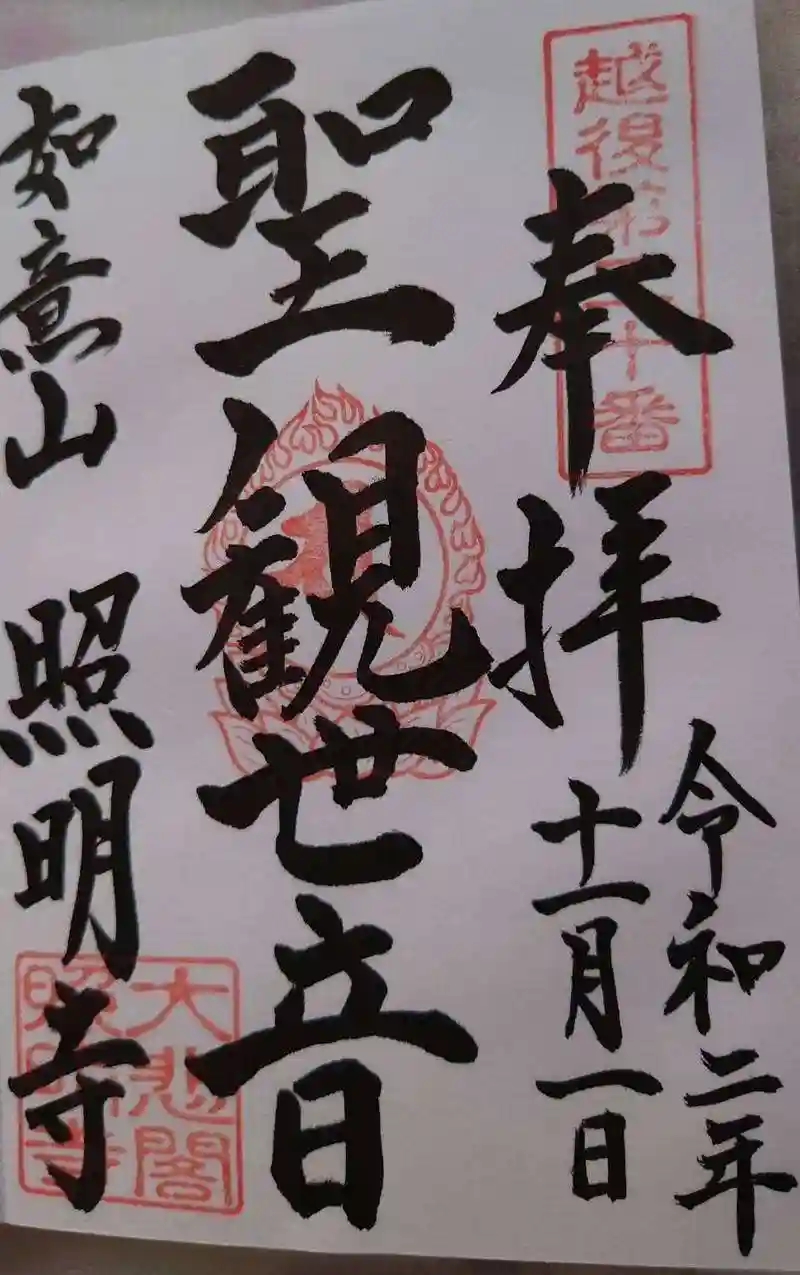 越後第二十番
奉拝
令和二年
十一月一日
聖観世音
如意山 照明寺
大悲閣
照明寺